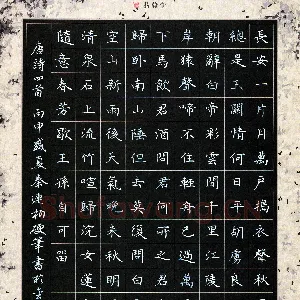 長安一片月萬戶搗衣聲秋
總是玉關情何日平胡虜良
朝辭白帝彩雲間千里江陵
岸猿聲啼不住輕舟已過萬
下馬飲君酒問君何所之君
歸臥南山陲但去莫復問白
空山新雨後天氣晚來秋明
清泉石上流竹喧歸浣女蓮
隨意春芳歇王孫自可留
唐詩四首 丙申歲夏秦漣柏硬筆書於